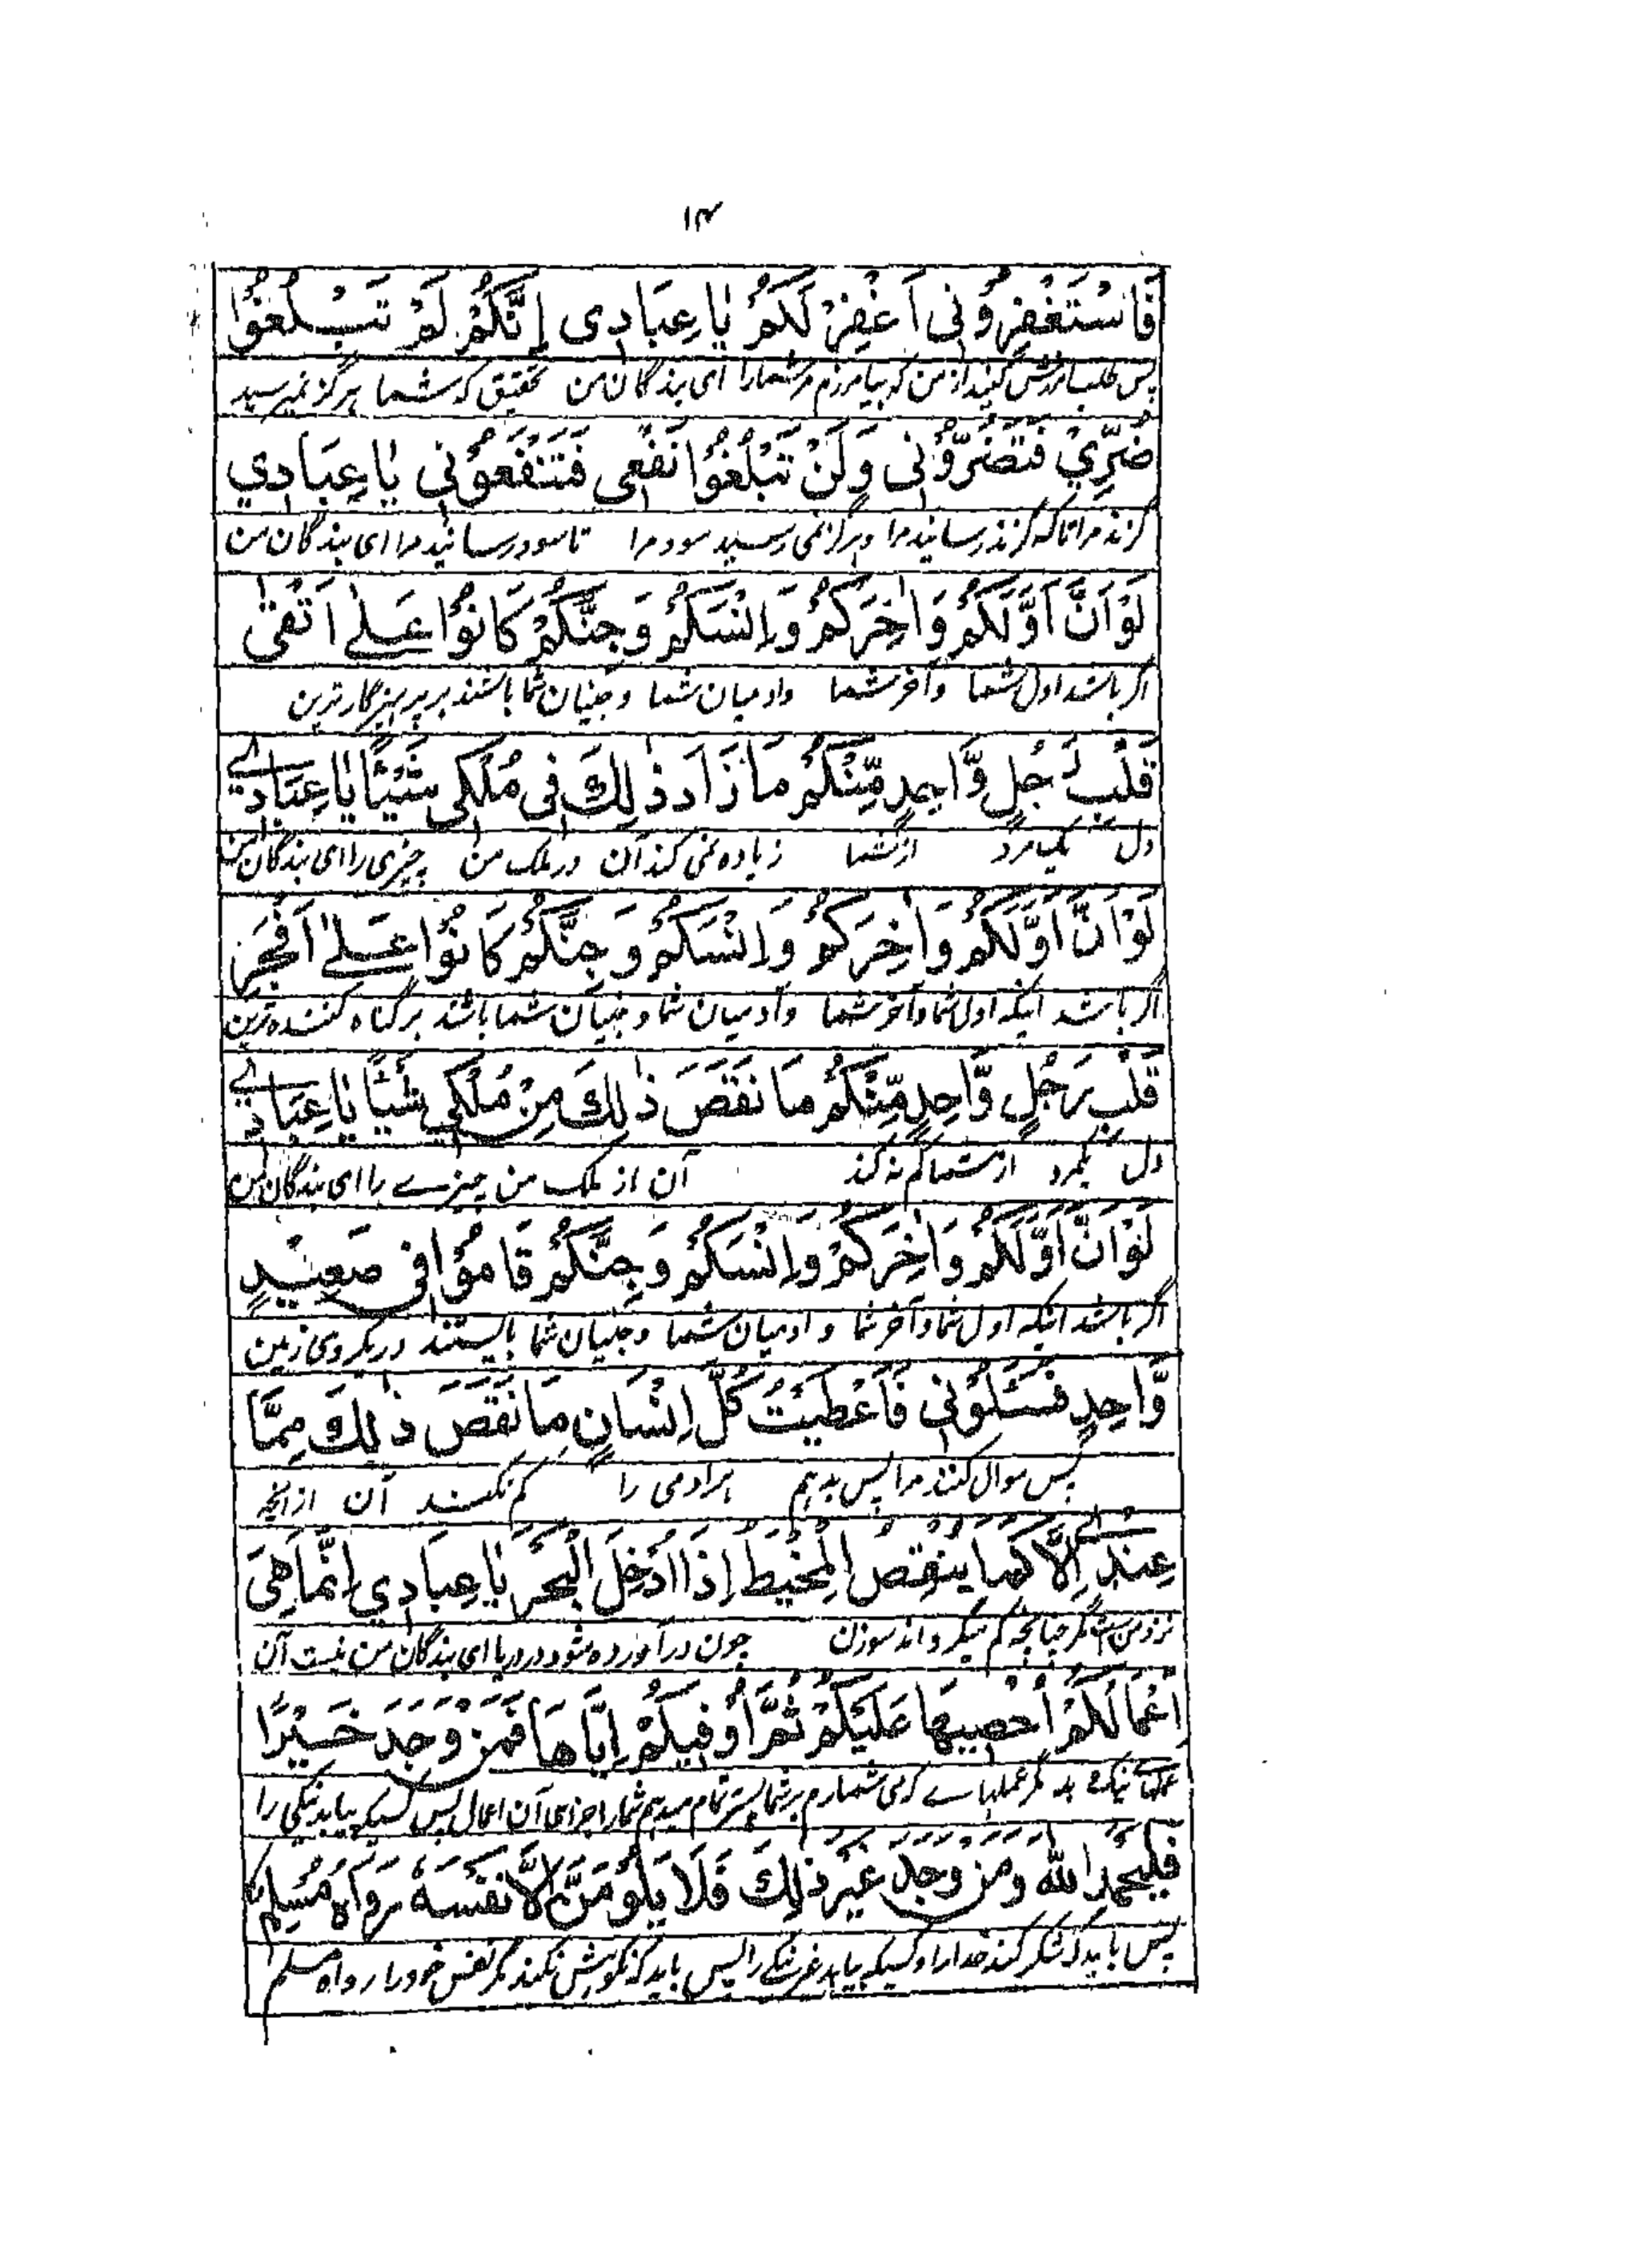 ۱۴
فَاسْتَغْفِرُوْنِى اَغْفِرْ لَكُمْ يَا عِبَادِى اِنَّكُمْ لَمْ تَبْلُغُوْا
پس طلب آمرزش کنید از من که بیامرزم مر شما را ای بندگان من تحقیق که شما هرگز نمیرسید
ضُرِّيْ فَتَضُرُّوْنِى وَلَنْ تَبْلُغُوْا نَفْعِى فَتَنْفَعُوْنِى يَا عِبَادِي
گزند مرا تا که گزند رسانید مرا و هرگز نمی رسید سود مرا تا سود رسانید مرا ای بندگان من
لَوْ اَنَّ اَوَّلَكُمْ وَاٰخِرَكُمْ وَاِنْسَكُمْ وَجِنَّكُمْ كَانُوْا عَلٰى اَتْقٰى
اگر باشد اول شما وآخر شما وادمیان شما و جنیان شما باشند بر پرهیزگار ترین
قَلْبِ رَجُلٍ وَّاحِدٍ مِّنْكُمْ مَا زَادَ ذٰلِكَ فِى مُلْكِى شَيْئًا يَا عِبَادِے
دل یک مرد از شما زیاده نمی کند آن در ملک من چیزی را ای بندگان من
لَوْ اَنَّ اَوَّلَكُمْ وَاٰخِرَكُمْ وَاِنْسَكُمْ وَجِنَّكُمْ كَانُوْا عَلٰى اَفْجَرِ
اگر باشد اینکه اول شما وآخر شما وآدمیان شما و جنیان شما باشند بر گناه کننده ترین
قَلْبِ رَجُلٍ وَّاحِدٍ مِّنْكُمْ مَا نَقَصَ ذٰلِكَ مِنْ مُلْكِي شَيْئًا يَا عِبَادِے
دل یکمرد از شما کم نه کند آن از ملک من چیزے را ای بندگان من
لَوْ اَنَّ اَوَّلَكُمْ وَاٰخِرَكُمْ وَاِنْسَكُمْ وَجِنَّكُمْ قَامُوْا فِى صَعِيْدٍ
اگر باشد اینکه اول شما وآخر شما و ادمیان شما و جنیان شما بایستند در یکروی زمین
وَّاحِدٍ فَسَئَلُوْنِى فَاَعْطَيْتُ كُلَّ اِنْسَانٍ مَا نَقَصَ ذٰلِكَ مِمَّا
پس سوال کنند مرا پس بدهم هر ادمی را کم نکند آن از انچه
عِنْدِے اِلَّا كَمَا يَنْقُصُ الْمِخْيَطُ اِذَا اُدْخِلَ الْبَحْرَ يَا عِبَادِي اِنَّمَا هِيَ
نزد من است مگر چنانچه کم میگرداند سوزن چون درآورده شود در دریا ای بندگان من نیست آن
اَعْمَالُكُمْ اُحْصِيْهَا عَلَيْكُمْ ثُمَّ اُوَفِّيْكُمْ اِيَّاهَا فَمَنْ وَجَدَ خَيْرًا
مگر عملهاے که می شمارم بر شما پستر تمام میدهم شما را جزای آن اعمال پس کسیکه بیابد نیکی را
فَلْيَحْمَدِ اللّٰهَ وَمَنْ وَجَدَ غَيْرَ ذٰلِكَ فَلَا يَلُوْمَنَّ اِلَّا نَفْسَهٗ رَوَاهُ مُسْلِم
پس باید که شکر کند خدا را و کسیکه بیابد غیر نیکی را پس باید که نکوهش نکند مگر نفس خود را رواه مسلم